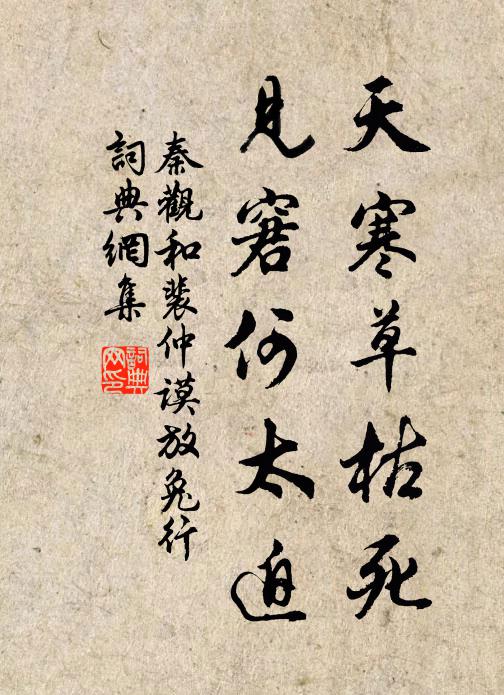 天寒草枯死
見窘何太迫
秦觀和裴仲謨放兔行
詞典網集
詞典
网印